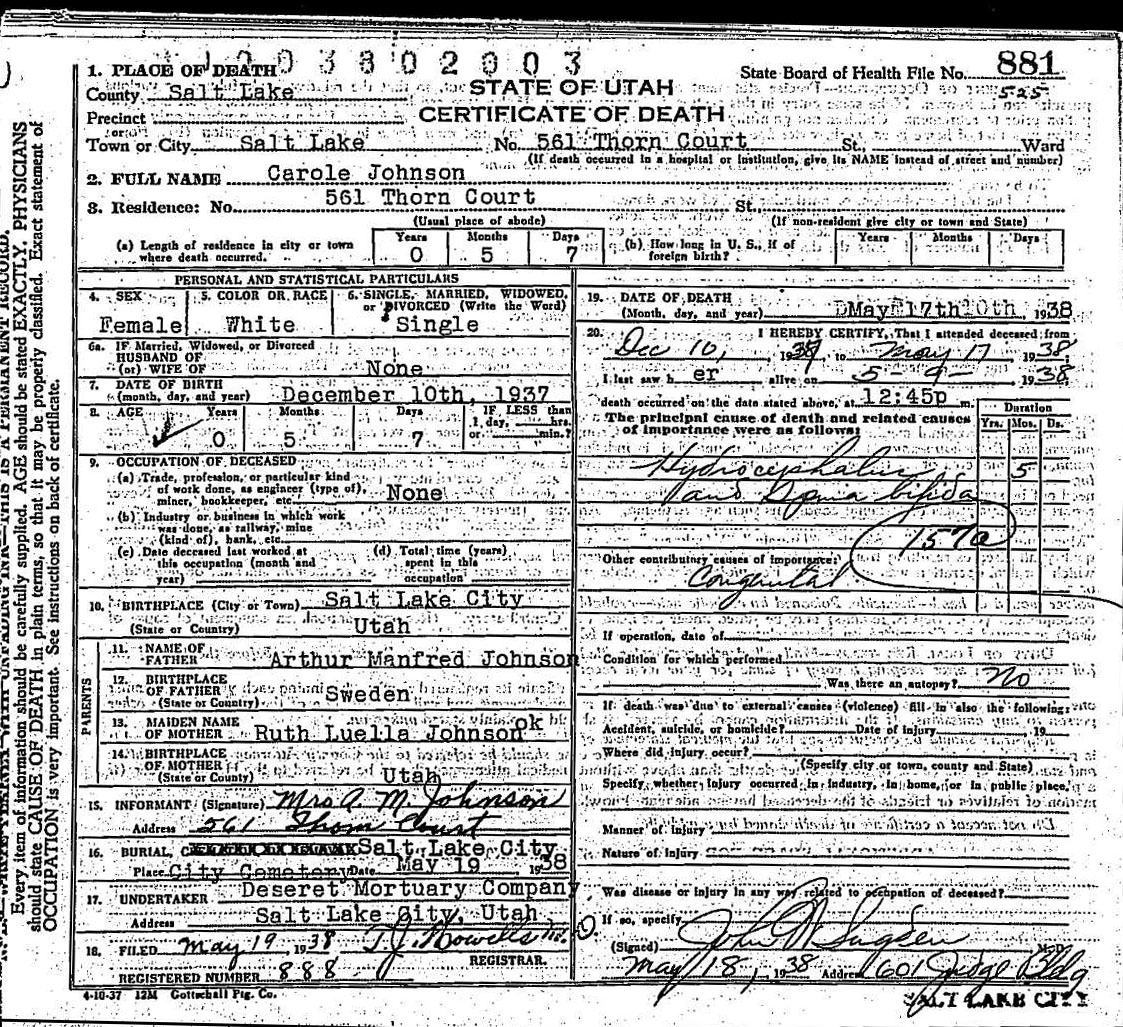 1003802003
1. PLACE OF DEATH
State Board of Health File No. 881
County Salt Lake
STATE OF UTAH
525
Precinct
CERTIFICATE OF DEATH
or
Town or City Salt Lake No. 561 Thorn Court St., Ward
(If death occurred in a hospital or institution, give its NAME instead of street and number)
2. FULL NAME Carole Johnson
3. Residence: No. 561 Thorn Court St.
(Usual place of abode) (If non-resident give city or town and State)
(a) Length of residence in city or town where death occurred. Years 0 Months 5 Days 7
(b) How long in U. S., if of foreign birth? Years Months Days
PERSONAL AND STATISTICAL PARTICULARS
4. SEX Female
5. COLOR OR RACE White
6. SINGLE, MARRIED, WIDOWED, or DIVORCED (Write the Word) Single
6a. IF Married, Widowed, or Divorced
HUSBAND OF
(or) WIFE OF None
7. DATE OF BIRTH
(month, day, and year) December 10th, 1937
8. AGE Years 0 Months 5 Days 7 IF LESS than 1 day, hrs. or min.?
9. OCCUPATION OF DECEASED
(a) Trade, profession, or particular kind
of work done, as engineer (type of),
miner, bookkeeper, etc. None
(b) Industry or business in which work
was done, as railway, mine
(kind of), bank, etc.
(c) Date deceased last worked at this occupation (month and year)
(d) Total time (years) spent in this occupation
10. BIRTHPLACE (City or Town) Salt Lake City
(State or Country) Utah
PARENTS
11. NAME OF
FATHER Arthur Manfred Johnson
12. BIRTHPLACE
OF FATHER Sweden
(State or Country)
13. MAIDEN NAME
OF MOTHER Ruth Luella Johnson ok
14. BIRTHPLACE
OF MOTHER
(State or Country) Utah
15. INFORMANT (Signature) Mrs A. M. Johnson
Address 561 Thorn Court
16. BURIAL, Salt Lake City
Place City Cemetery Date May 19 1938
17. UNDERTAKER Deseret Mortuary Company
Address Salt Lake City, Utah
18. FILED May 19 1938 T. J. Howells
REGISTRAR.
REGISTERED NUMBER 888
4-10-37 12M Gottschall Ptg. Co.
19. DATE OF DEATH
(Month, day, and year) May 17th 1938
20. I HEREBY CERTIFY, That I attended deceased from
Dec 10, 1937 to May 17 1938,
I last saw h er alive on 5-9- 1938
death occurred on the date stated above, at 12:45p m.
The principal cause of death and related causes
of importance were as follows:
Duration
Yrs. Mos. Ds.
Hydrocephalus 5
and Spina bifida
157a
Other contributory causes of importance:
Congenital
If operation, date of
Condition for which performed
Was there an autopsy? No
If death was due to external causes (violence) fill in also the following:
Accident, suicide, or homicide? Date of injury , 19
Where did injury occur?
(Specify city or town, county and State)
Specify whether injury occurred in industry, in home, or in public place,
Manner of injury
Nature of injury
Was disease or injury in any way related to occupation of deceased?
If so, specify
(Signed) John N Sugden M.D.
May 18, 1938 Address 601 Judge Bldg
SALT LAKE CITY
Every item of information should be carefully supplied. AGE should be stated EXACTLY. PHYSICIANS
should state CAUSE OF DEATH in plain terms, so that it may be properly classified. Exact statement of
OCCUPATION is very important. See instructions on back of certificate.